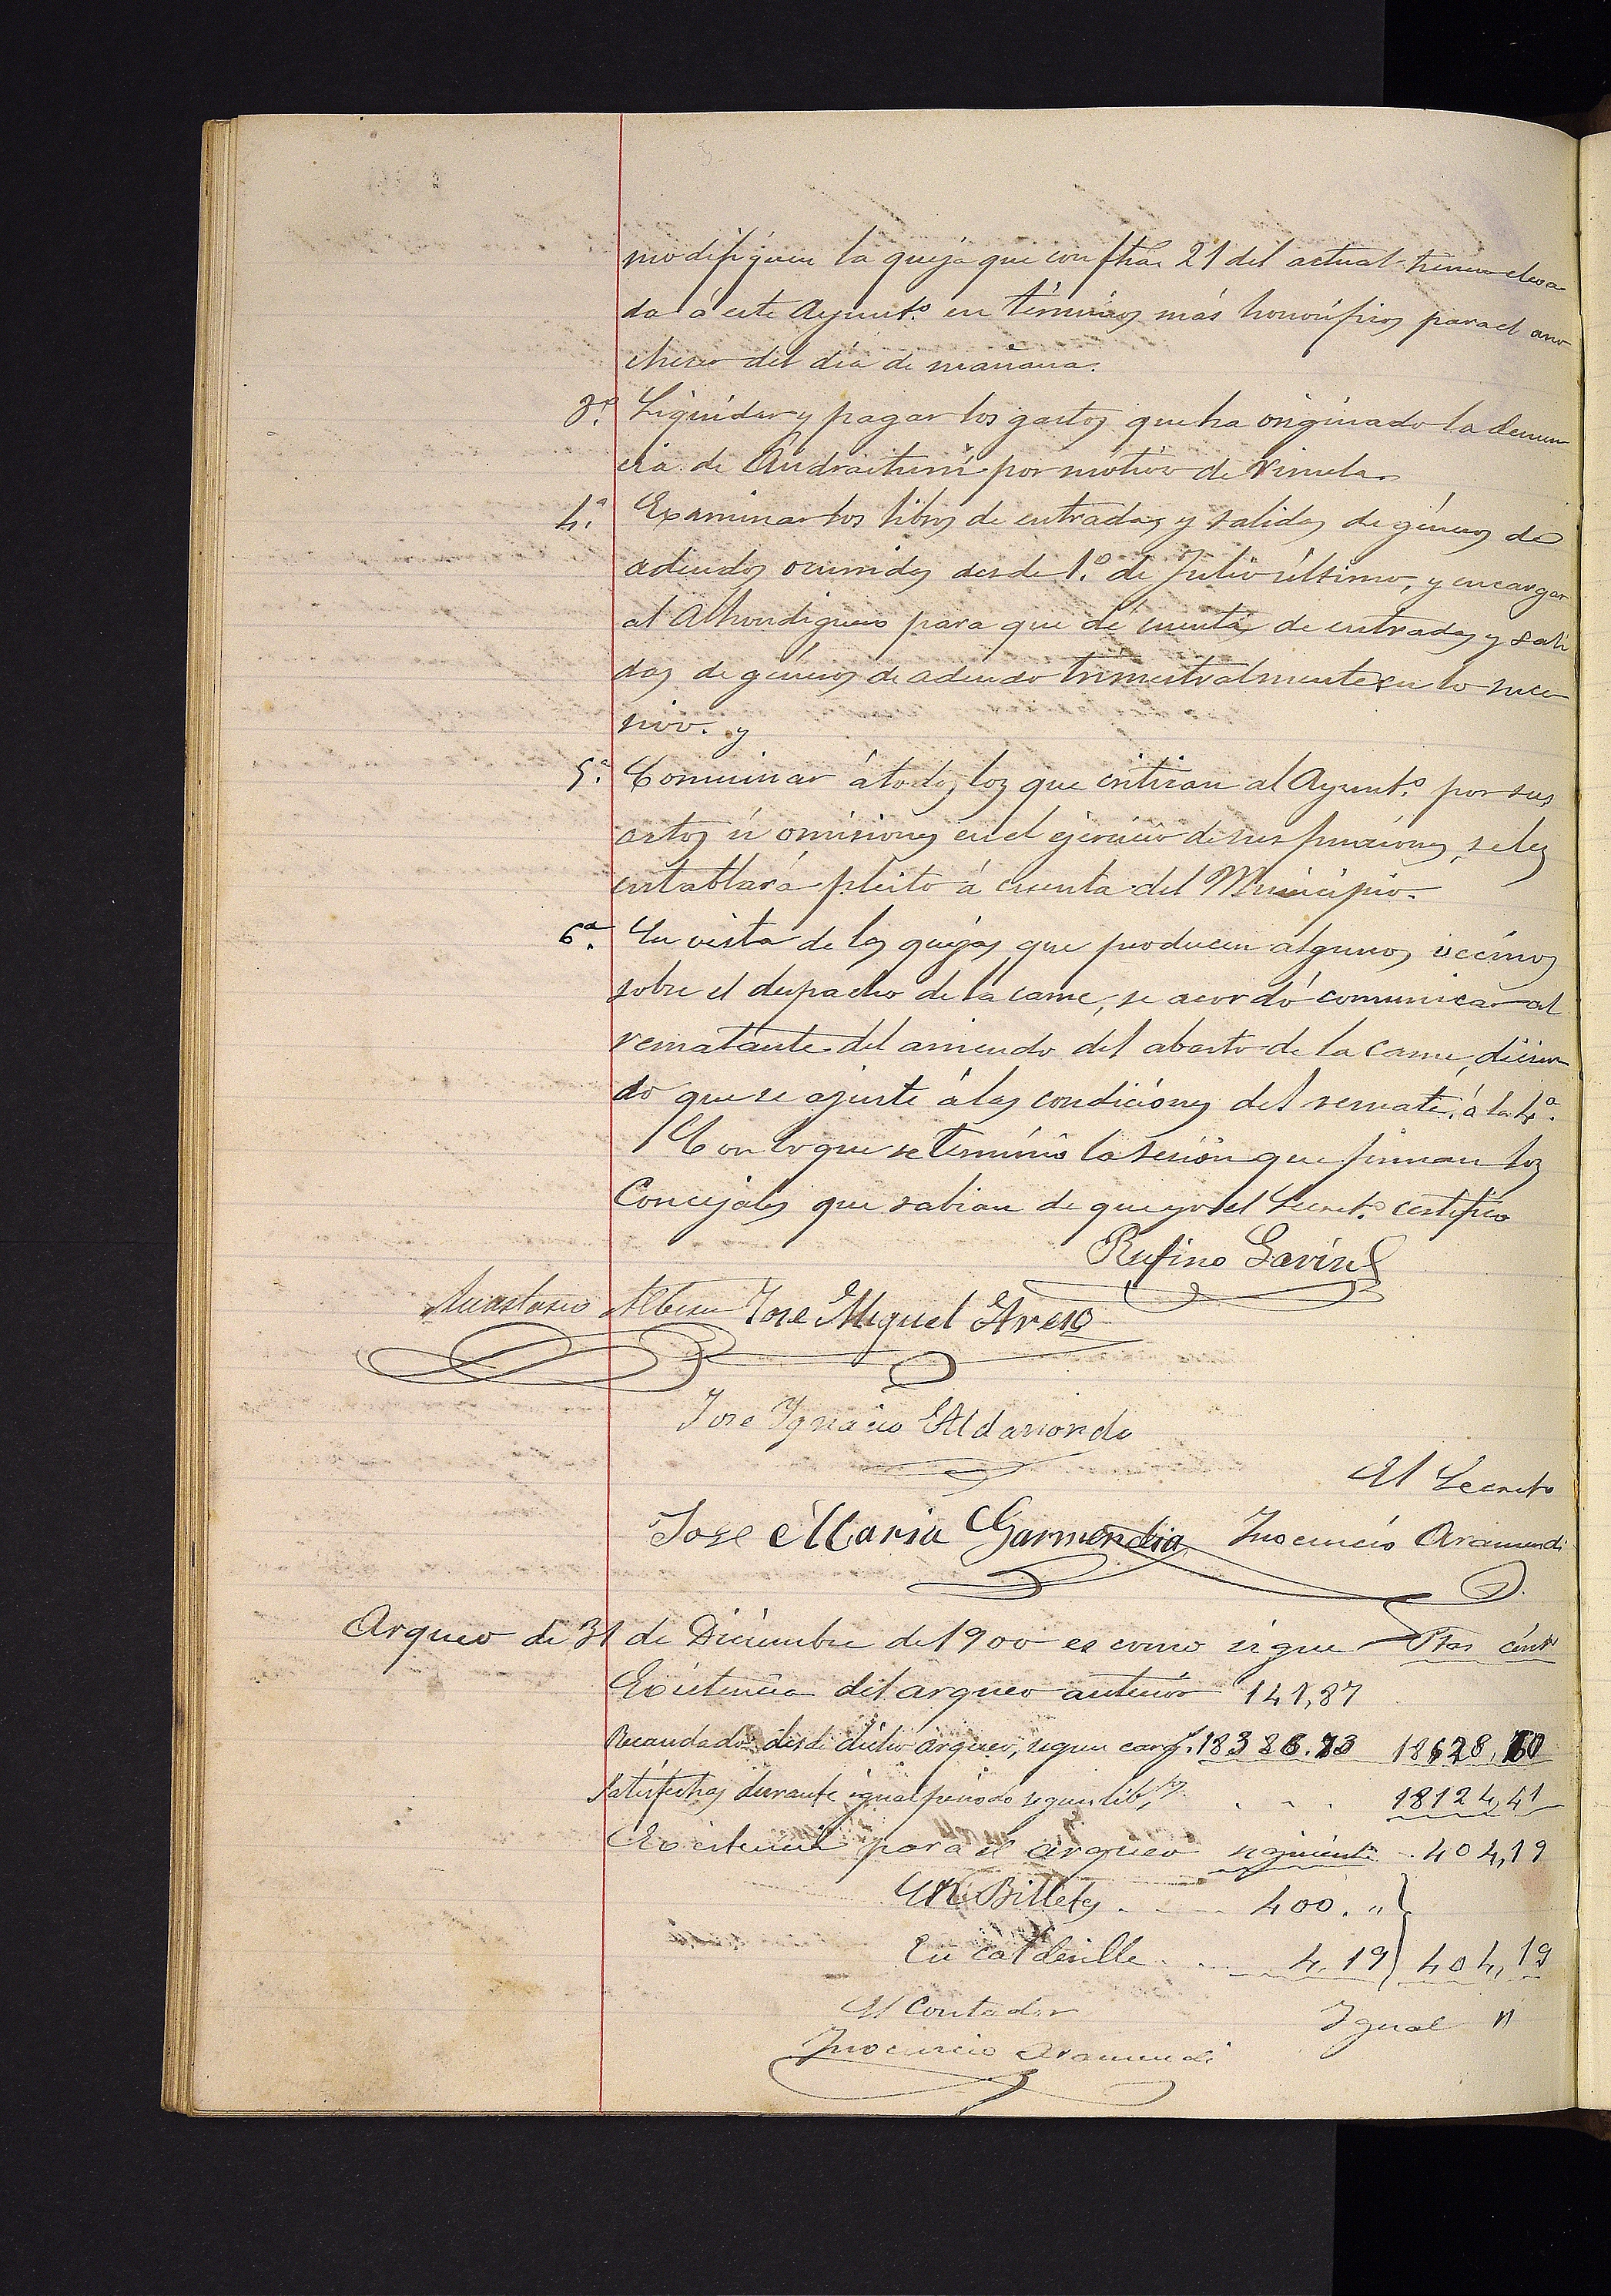 modifiquen la queja que con fha. 21 del actual tienen eleva
da á este Ayunto. en términos más honoríficos para el ano
checer del día de mañana.
3.º Liquidar y pagar los gastos que ha originado la denun
cia de por motivo de viruela
4.ª Examinar los libros de entradas y salidas de géneros de
adeudos ocurridos desde 1.º de Julio último, y encargar
al Alhondiguero para que dé cuentas de entradas y sali
das de géneros de adeudo trimestralmente en lo suce
sivo. y
5.ª Conminar á todos los que critican al Ayunto. por sus
actos ú omisiones en el ejercicio de sus funciones, se les
entablará pleito á cuenta del Municipio.
6.ª En vista de las quejas que producen algunos vecinos
sobre el despacho de la carne, se acordó comunicar al
rematante del arriendo del abasto de la carne, dicien
do que se ajuste á las condiciones del remate, á la 4.ª
Con lo que se terminó la sesión que firman los
Concejales que sabian de que yo el Secreto. certifico
Rufino Gavin
Anastasio Albisu José Miguel Areso
Jose Ygnacio Aldanondo
El Secreto
Jose Maria Garmendia Inocencio Aramendi
Arqueo de 31 de Diciembre de 1900 es como sigue Ptas cénts
Existencia del arqueo anterior 141,87
Recaudado desde dicho arqueo, segun carg. 18386.73 18528,60
Satisfechos durante igual periodo segun lib. 18124,41
Existencia para el arqueo siguiente 404,19
En Billetes 400. "
En calderilla 4,19 404,19
El Contador Igual "
Inocencio Aramendi